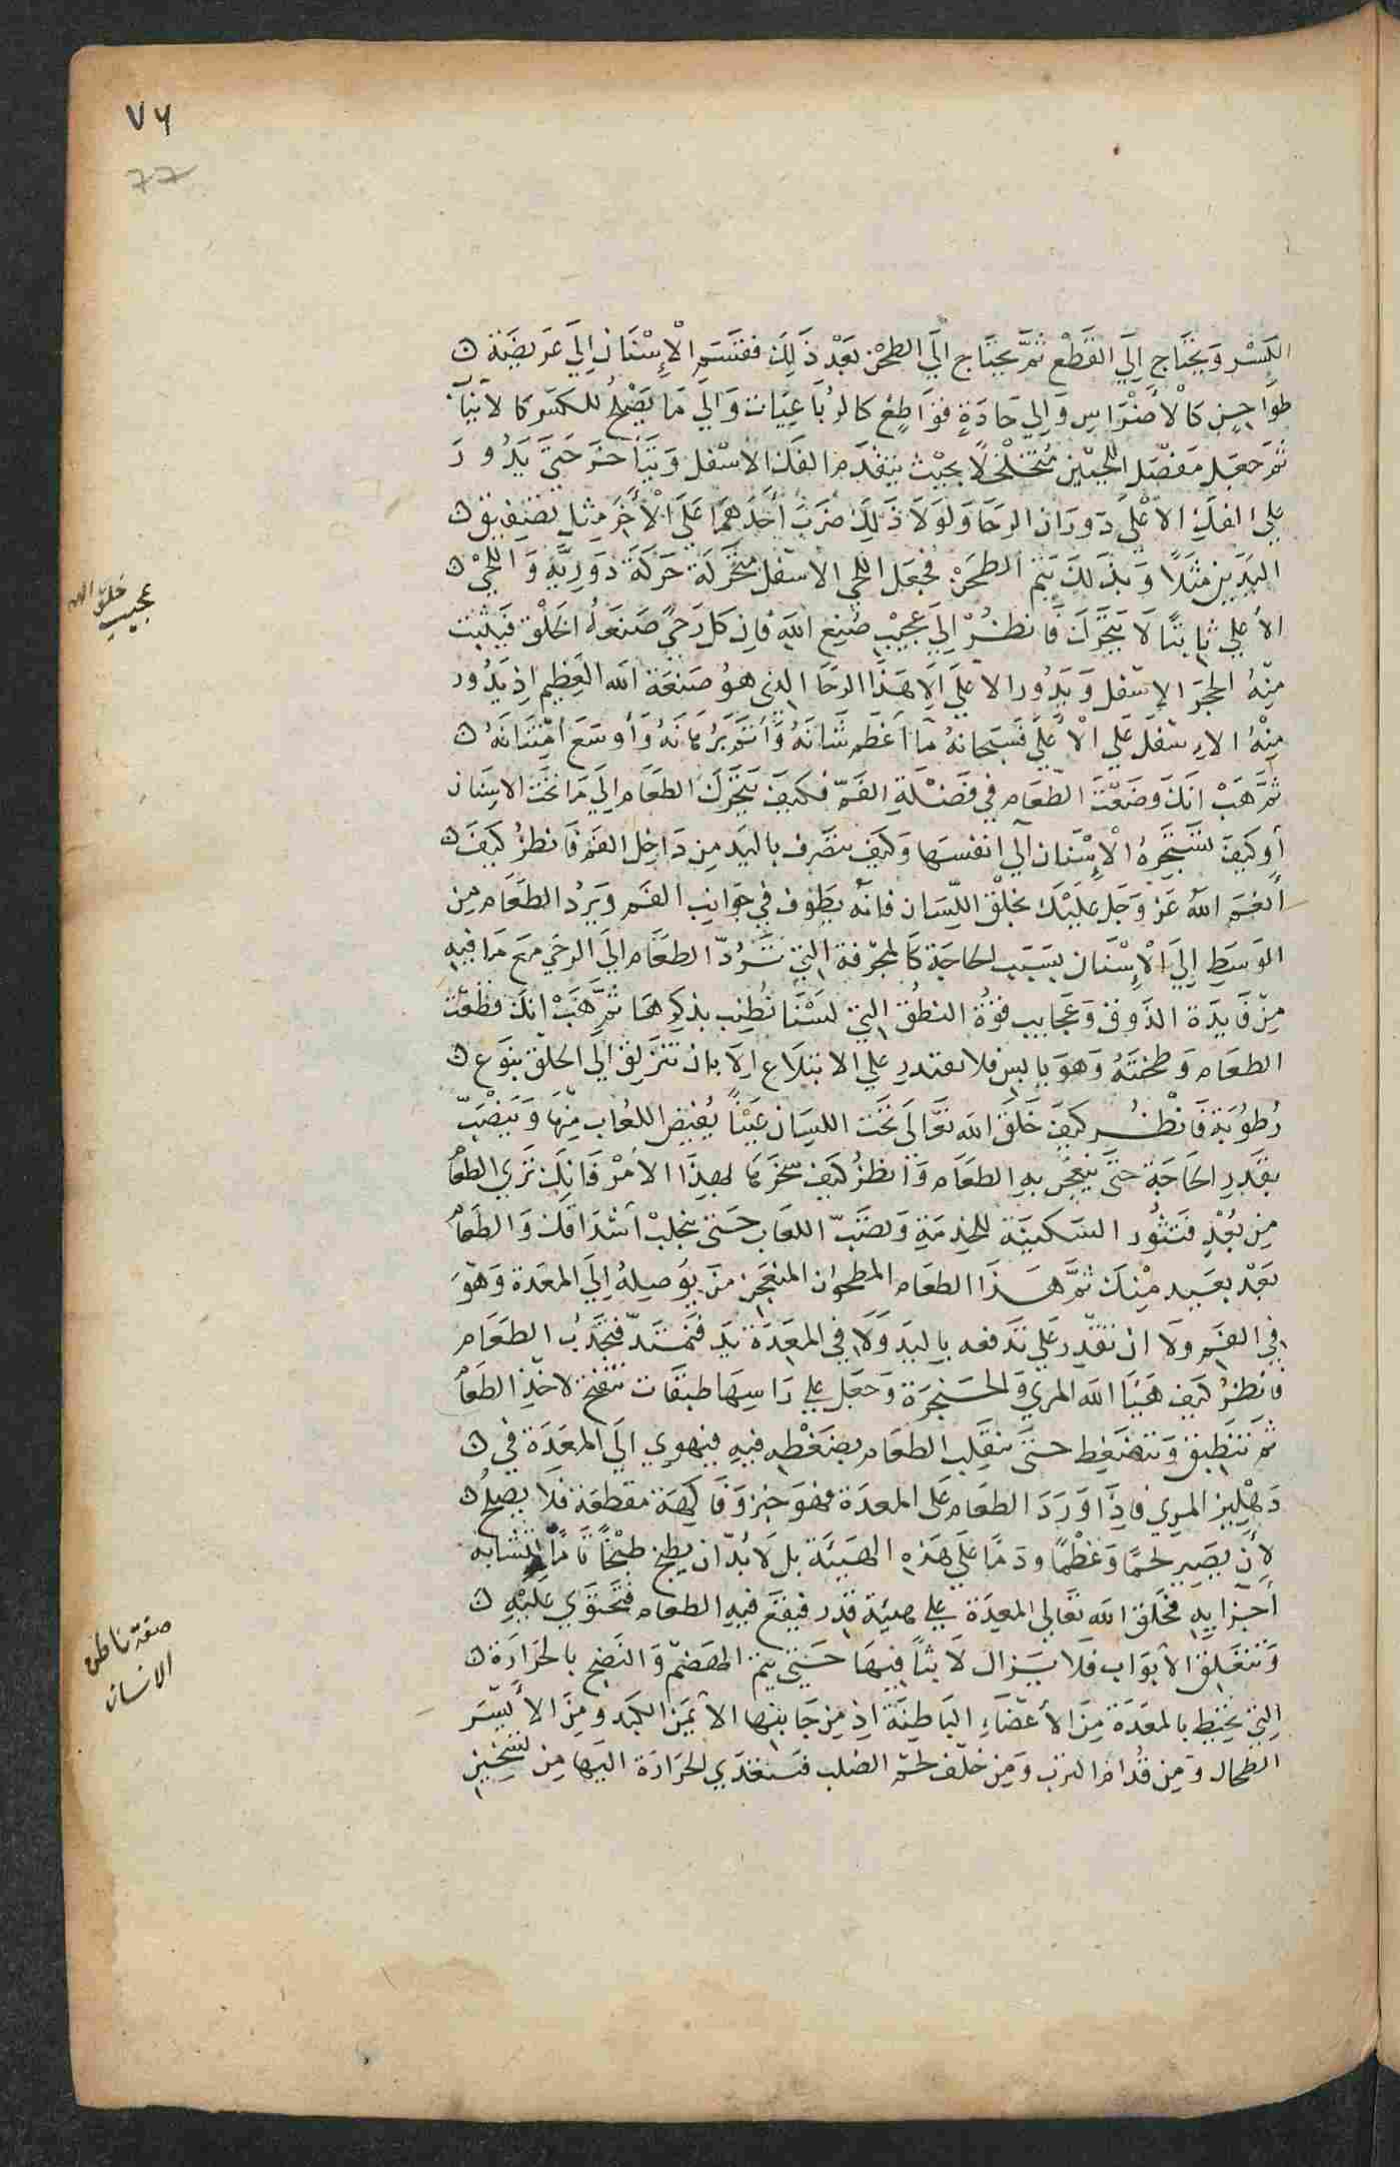 ٧٦
77
الكسر ويحتاج الي القطع ثم يحتاج الي الطحن بعد ذلك فقسم الاسنان الي عريضة
طواحين كالأضراس والي حادة قواطع كالرباعيات والي ما يصلح للكسر كالانياب
ثم جعل مفصل اللحيين متخلخلا بحيث يتقدم الفك الاسفل ويتأخر حتي يدور
علي الفك الاعلي دوران الرحا ولولا ذلك ضرب أحدهما علي الأخر مثل تصفيق
اليدين مثلا وبذلك يتم الطحن فجعل اللحي الاسفل متحركة حركة دورية واللحي
الأعلي ثابتا لا يتحرك فانظر الي عجيب صنع الله فان كل رحي صنعه الخلق فيثبت
منه الحجر الاسفل ويدور الاعلي الا هذا الرحا الذي هو صنعة الله العظيم اذ يدور
منه الاسفل علي الأعلي فسبحانه ما اعظم شانه وأتم برهانه وأوسع امتنانه
ثم هب انك وضعت الطعام في فضلة الفم فكيف يتحرك الطعام الي ما تحت الاسنان
أو كيف تستجره الاسنان الي انفسها وكيف يتصرف باليد من داخل الفم فانظر كيف
أنعم الله عز وجل عليك بخلق اللسان فانه يطوف في جوانب الفم ويرد الطعام من
الوسط الي الاسنان بسبب الحاجة كالمجرفة التي ترد الطعام الي الرحي مع ما فيه
من فايدة الذوق وعجايب قوة النطق التي لسنا نطنب بذكرها ثم هب انك قطعت
الطعام وطحنته وهو يابس فلا تقتدر علي الابتلاع الا بان تنزلق الي الحلق بنوع
رطوبة فانظر كيف خلق الله تعالي تحت اللسان عينا يفيض اللعاب منها وينصب
بقدر الحاجة حتي ينعجن به الطعام وانظر كيف سخرها لهذا الأمر فانك تري الطعام
من بعد فتثور المسكينة للخدمة وتصب اللعاب حتي يتحلب أشداقك والطعام
بعد بعيد منك ثم هذا الطعام المطحون المنعجن من يوصله الي المعدة وهو
في الفم ولا ان تقدر علي تدفعه باليد ولا في المعدة يد فتمتد فتجذب الطعام
فانظر كيف هيأ الله المري والحنجرة وجعل علي راسها طبقات تنفتح لاخذ الطعام
ثم تنطبق وتنضغط حتي ينقلب الطعام بضغطه فيه فيهوي الي المعدة في
دهليز المري فاذا ورد الطعام علي المعدة فهو خبز وفاكهة مقطعة فلا يصلح
لأن يصير لحما وعظما ودما علي هذه الهيئة بل لا بد ان يطبخ طبخا تاما لتشابه
أجزايه فخلق الله تعالي المعدة علي هيئة قدر فيقع فيه الطعام فتحتوي عليه
وتنغلق الابواب فلا يزال لابثا فيها حتي يتم الهضم والنضج بالحرارة
التي تحيط بالمعدة من الأعضاء الباطنة اذ من جانبها الايمن الكبد ومن الأيسر
الطحال ومن قدام الثرب ومن خلف لحم الصلب فتتعدي الحرارة اليها من تسخين
عجيب خلق الله
صفة باطن
الانسان